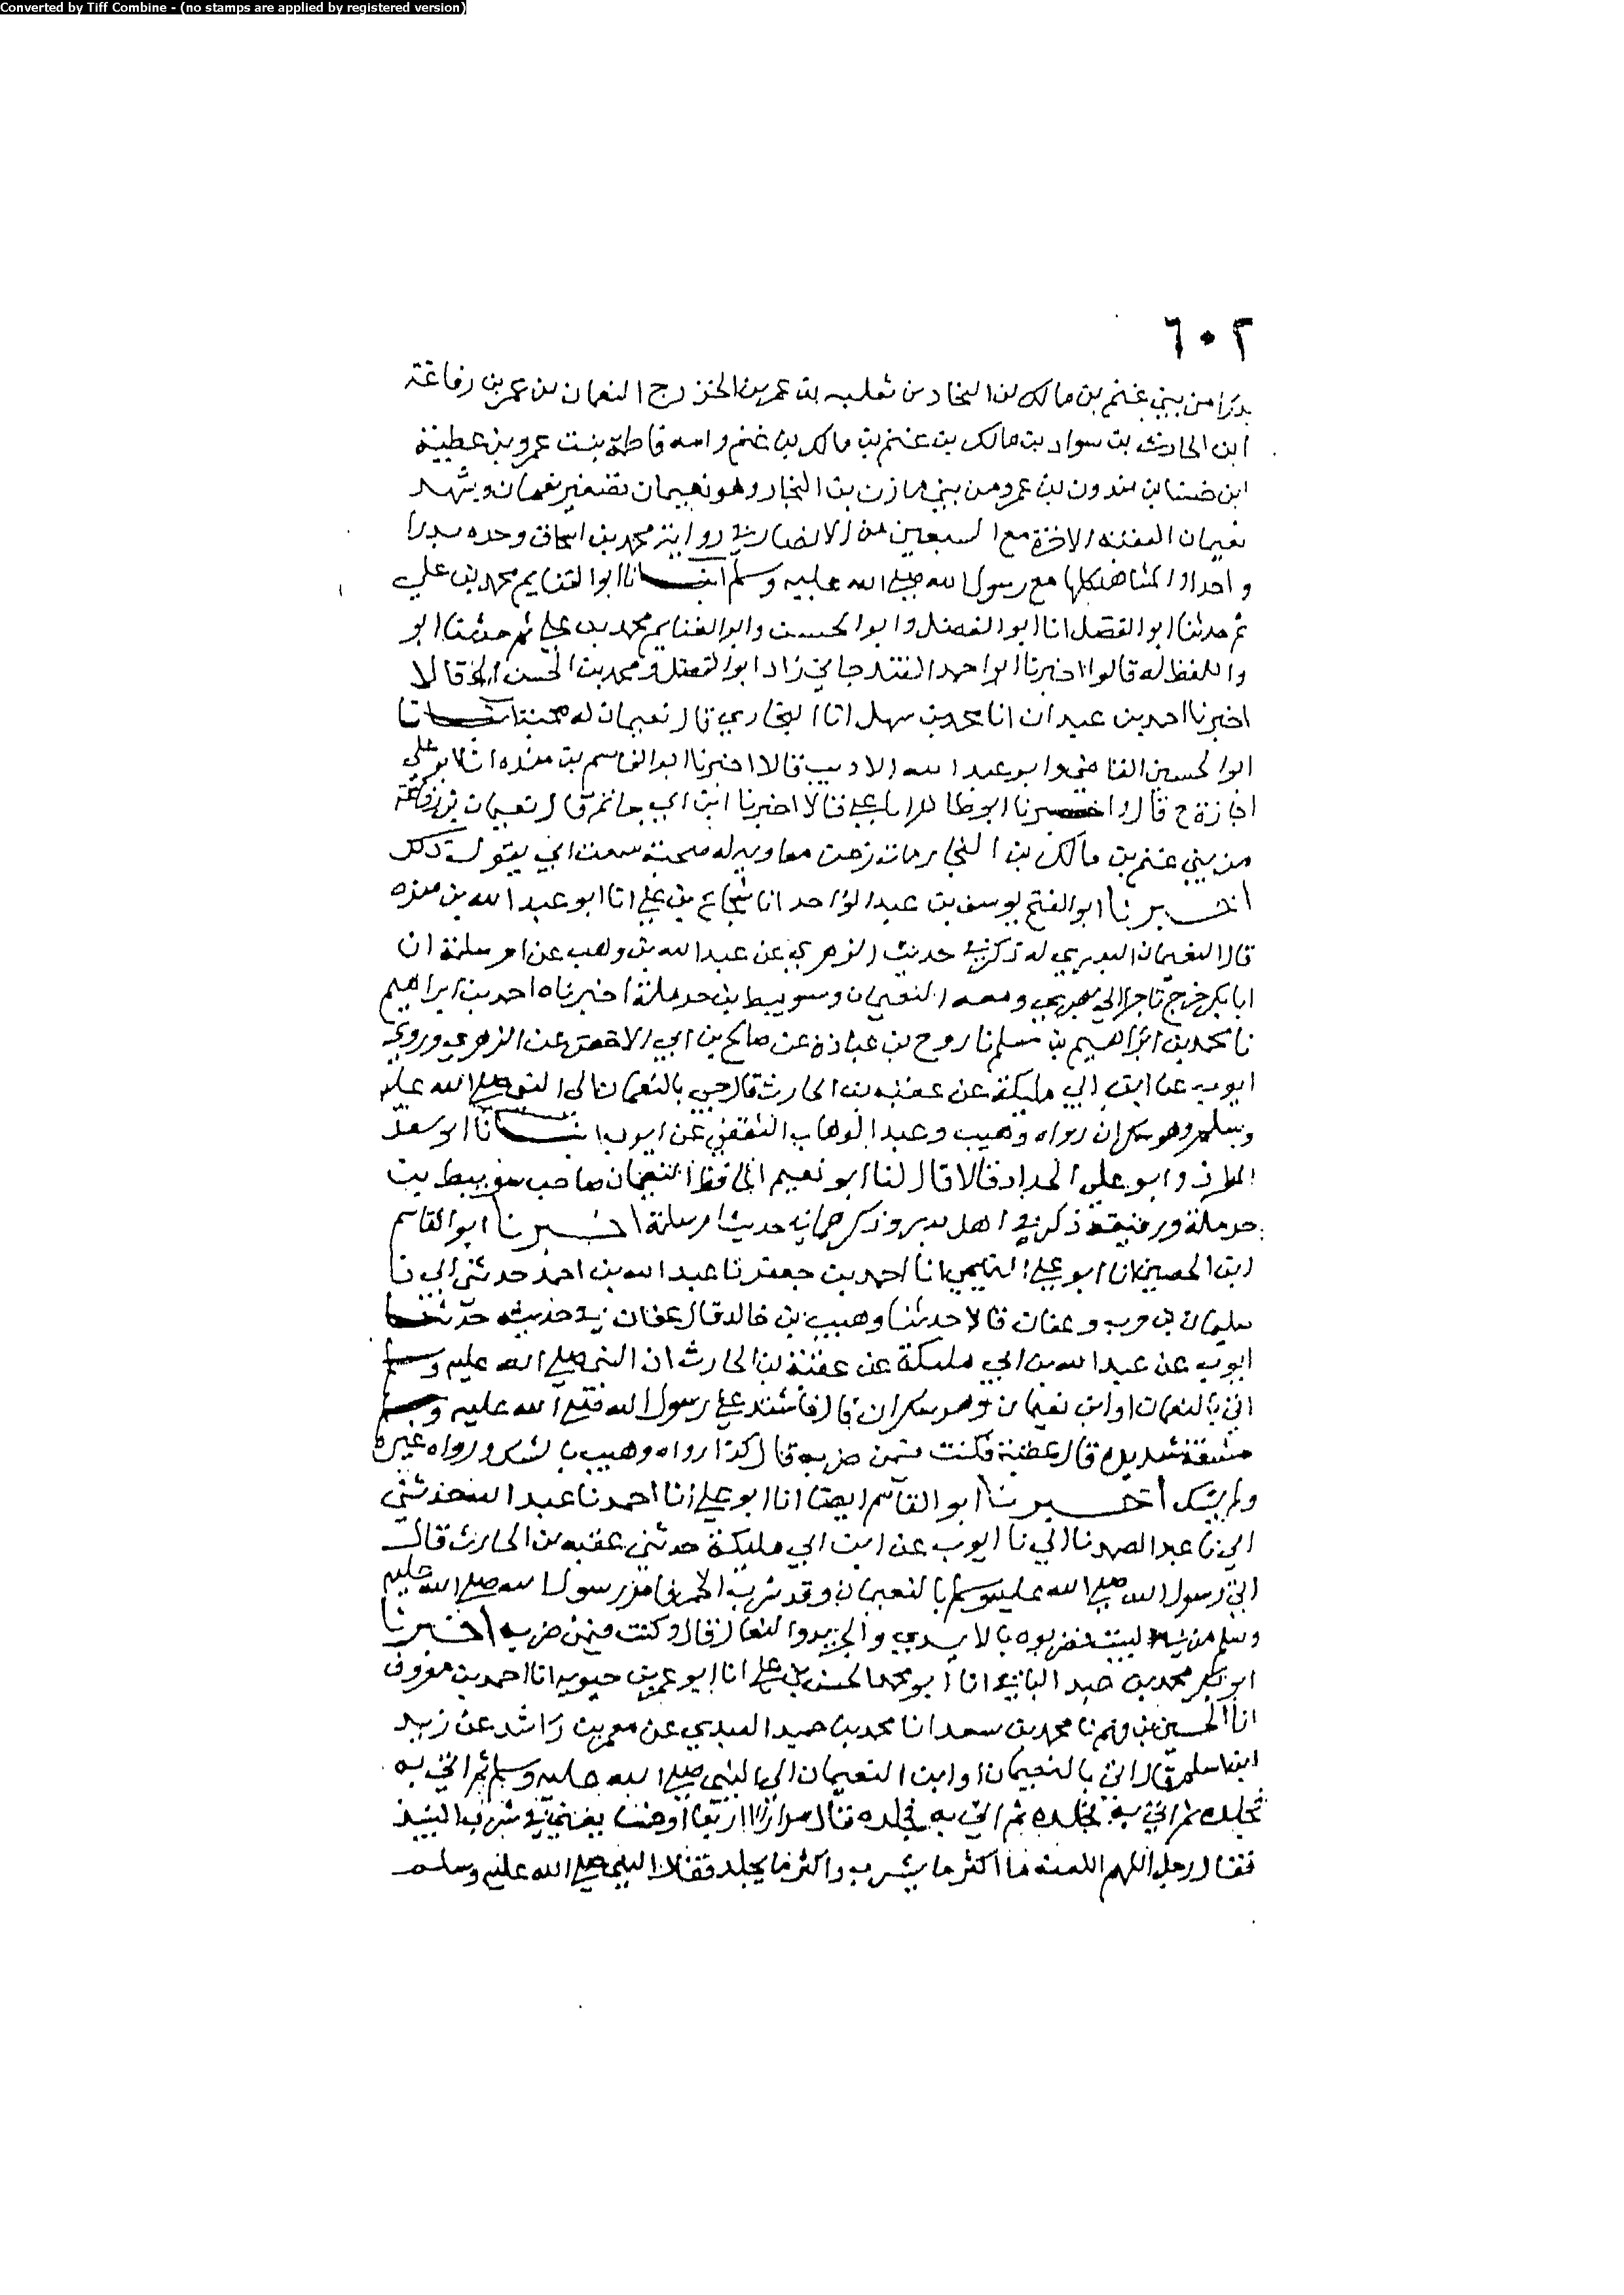 Converted by Tiff Combine - (no stamps are applied by registered version)
٦٠٢
بدرا من بني غنم بن مالك بن النجار بن ثعلبه بن عمر بن الخزرج النعمان بن عمر بن رفاعة
ابن الحارث بن سواد بن مالك بن غنم بن مالك بن غنم وامه فاطمة بنت عمرو بن عطية
ابن خنسا بن مبذون بن عمرو من بني مازن بن النجار وهو نعيمان تصغير نعمان وشهد
نعيمان العقبة الاخرة مع السبعين من الانصار في رواية محمد بن اسحاق وحده بدرا
واحدا والمشاهد كلها مع رسول الله صلى الله عليه وسلم انبانا ابو الغنايم محمد بن علي
ثم حدثنا ابو الفضل انا ابو الفضل وابو الحسين وابو الغنايم محمد بن علي ثم حدثنا ابو
واللفظ له قالوا اخبرنا ابو احمد الغندجاني زاد ابو الفضل ومحمد بن الحسن قالا
اخبرنا احمد بن عبدان انا محمد بن سهل انا البخاري قال نعيمان له صحبة انبانا
ابو الحسين القاضي وابو عبد الله الاديب قالا اخبرنا ابو القاسم بن منده انا ابو علي
اجازة ح قال واخبرنا ابو طاهر انا علي قالا اخبرنا ابن ابي حاتم قال نعيمان بن رفاعة
من بني غنم بن مالك بن النجار مات زمن معاويه له صحبة سمعت ابي يقول ذلك
اخبرنا ابو الفتح يوسف بن عبد الواحد انا شجاع بن علي انا ابو عبد الله بن منده
قال النعيمان البدري له ذكر في حديث الزهري عن عبد الله بن وهب عن ام سلمة ان
ابا بكر خرج تاجرا الي بصري ومعه النعيمان وسويبط بن حرملة اخبرناه احمد بن ابراهيم
نا محمد بن ابراهيم بن مسلم نا روح بن عبادة عن صالح بن ابي الاخضر عن الزهري وروي
ايوب عن ابن ابي مليكة عن عقبه بن الحارث قال جي بالنعمان الى النبي صلى الله عليه
وسلم وهو سكران رواه وهيب وعبد الوهاب الثقفي عن ايوب انبانا ابو سعد
المطرز وابو علي الحداد قالا قال لنا ابو نعيم الحافظ النعيمان صاحب سويبط بن
حرملة ورفيقه ذكر في اهل بدر وذكر حديث ام سلمة اخبرنا ابو القاسم
ابن الحصين انا ابو علي التميمي انا احمد بن جعفر نا عبد الله بن احمد حدثني ابي نا
سليمان بن حرب وعفان قالا حدثنا وهيب بن خالد قال عفان في حديثه حدثنا
ايوب عن عبد الله بن ابي مليكة عن عقبة بن الحارث ان النبي صلى الله عليه وسلم
اتي بالنعمان او ابن نعيمان وهو سكران قال فاشتد على رسول الله صلى الله عليه وسلم
مشقة شديدة قال عقبة فكنت فيمن ضربه قال كذا رواه وهيب بالشك ورواه غيره
ولم يشك اخبرنا ابو القاسم ايضا انا ابو علي انا احمد نا عبد الله حدثني
ابي نا عبد الصمد نا ابي نا ايوب عن ابن ابي مليكة حدثني عقبه بن الحارث قال
اتي رسول الله صلى الله عليه وسلم بالنعيمان وقد شرب الخمر فامر رسول الله صلى الله عليه
وسلم من في البيت فضربوه بالايدي والجريد والنعال قال وكنت فيمن ضربه اخبرنا
ابو بكر محمد بن عبد الباقي انا ابو محمد الحسن بن علي انا ابو عمر بن حيويه انا احمد بن معروف
انا الحسين بن فهم نا محمد بن سعد انا محمد بن حميد العبدي عن معمر بن راشد عن زيد
ابن اسلم قال اتي بالنعيمان او ابن النعيمان الى النبي صلى الله عليه وسلم ثم اتي به
فجلده ثم اتي به فجلده ثم اتي به فجلده قال مرارا اربعا او خمسا يعني في شرب النبيذ
فقال رجل اللهم العنه ما اكثر ما يشرب واكثر ما يجلد فقال النبي صلى الله عليه وسلم